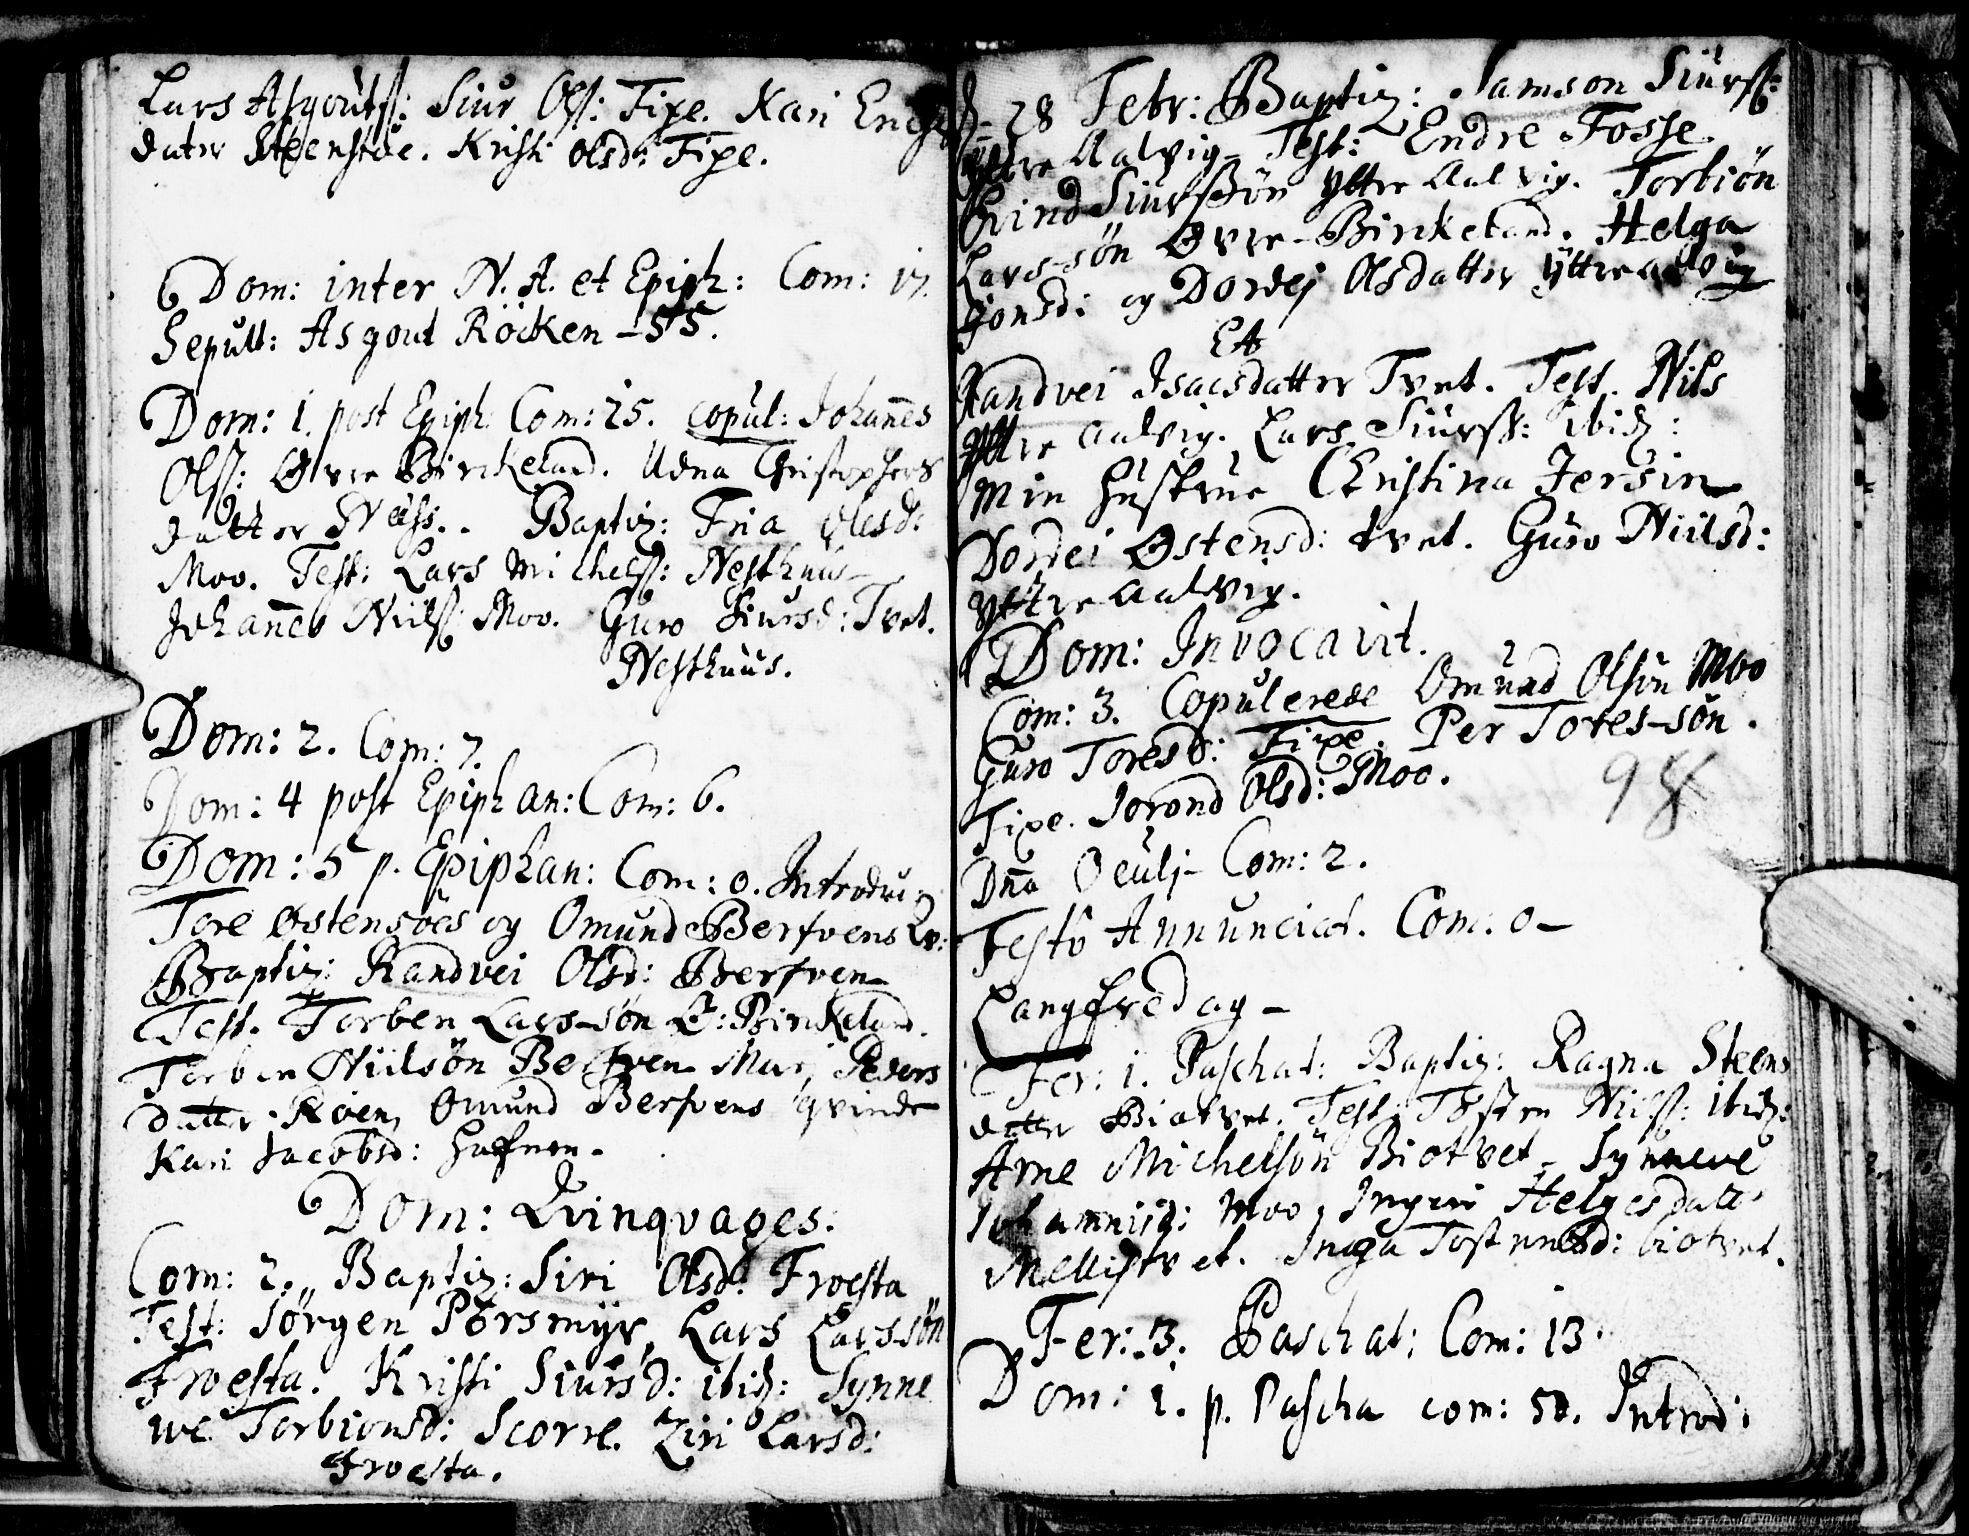 Lars Asgoutss: Siur Olss: Fixe. Kari
dater Steenstøe. Kristi Olsd: Fixe.
Dom: inter N. A. et Epiph: Com: 17.
Sepult: Asgout Röcken – 55.
Dom: 1. post Epiph: Com: 25. copul: Johañes
Olss: Øvre Birckeland. Udna Christophers
datter Næss. Baptiz: Fria Olesd:
Moo. Test: Lars Michelss: Nesthuus
Johañes Niilss: Moo. Guro Siursd: Tvet.
Nesthuus.
Dom: 2. Com: 7.
Dom: 4 post Epiphan: Com: 6.
Dom: 5 p. Epiphan: Com: 0. Introduc:
Tore Østensöes og Omund Berfvens qv:
Baptiz: Randvei Olsd: Berfven
Test. Torben Lars-sön Ø: Birkeland.
Torben Niilsön Berfven Mari Peders
datter Röen, Omund Berfvens qvinde
Kari Jacobsd: Hafnen.
Dom: Qvinqvages:
Com: 2. Baptiz: Siri Olsd: Froesta
Test: Jörgen Porsmyr, Lars Larssön
Froesta. Kristi Siursd: ibid: Synne
we Torbionsd: Scorre. Ziri Larsd:
Froesta.
D. 28 Febr: Baptiz: Samson Siurss:
Yttre Aalvig – Test: Endre Fosse
Eivind Siurssön Yttre Aalvig. Torbiön
Lars-sön Øvre-Birkeland. Helga
Jonsd: og Dordej Olsdatter Yttre aalvig
Et
Randvei Isacsdatter Tvet. Test. Nils
Yttre aalvig. Lars Siurss: ibid:
Min Hustrue Christina Jersin
Dordei Østensd: tvet. Guro Niilsd:
Yttre aalvig.
Dom: Invocavit.
Com: 3. Copulerede Omund Olsön Moo
Guro Toresd: Fixe. Per Tores-sön
Fixe. Jorond Olsd: Moo.
98
Dña Oculj – Com: 2.
Festo Annunciat. Com: 0 –
Langfredag –
Fer: 1. Paschat: Baptiz: Ragna Steens
datter Biotvet. Test: Tosten Nilss: ibid:
Arne Michelsön Biotvet – Synneve
Johannisd: Moo, Ingri Helgesdatt
Mellistvet. Inga Tostensd: biotvet.
Fer: 3. Paschat: Com: 13
Dom: 1. p. Pascha com: 50. Introd: